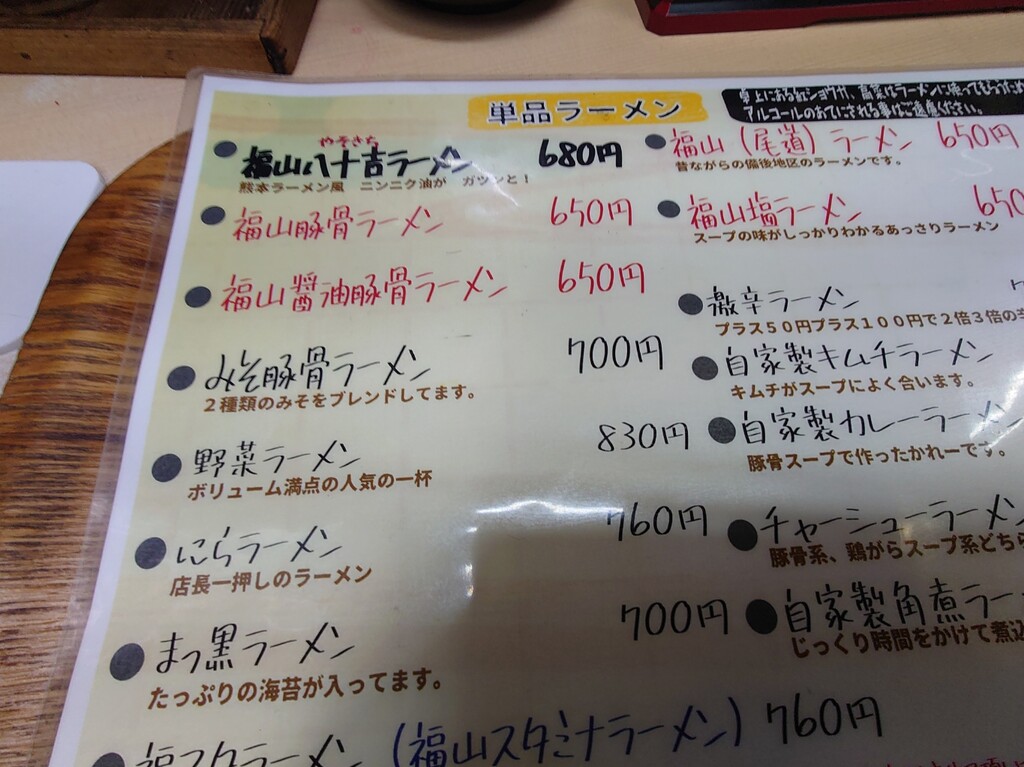 単品ラーメン
アルコールのおていされる事はご遠慮ください。
やそきち
福山八十吉ラーメン 680円
熊本ラーメン風 ニンニク油が ガツンと!
福山豚骨ラーメン 650円
福山醤油豚骨ラーメン 650円
みそ豚骨ラーメン 700円
2種類のみそをブレンドしてます。
野菜ラーメン 830円
ボリューム満点の人気の一杯
にらラーメン 760円
店長一押しのラーメン
まっ黒ラーメン 700円
たっぷりの海苔が入ってます。
福スタラーメン (福山スタミナラーメン) 760円
福山(尾道)ラーメン 650円
昔ながらの備後地区のラーメンです。
福山塩ラーメン 650
スープの味がしっかりわかるあっさりラーメン
激辛ラーメン
プラス50円プラス100円で2倍3倍の辛
自家製キムチラーメン
キムチがスープによく合います。
自家製カレーラーメン
豚骨スープで作ったかれーです。
チャーシューラーメン
豚骨系、鶏がらスープ系どちら
自家製角煮ラー
じっくり時間をかけて煮込